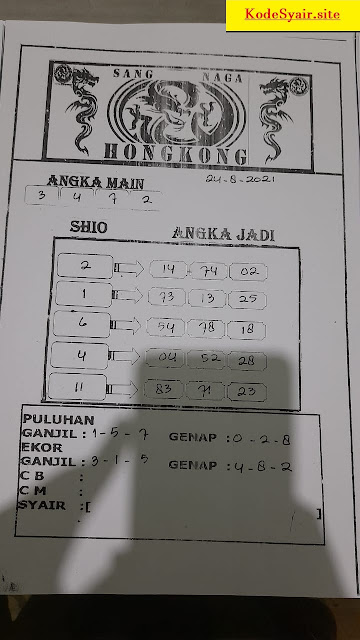 KodeSyair.site
SANG NAGA
HONGKONG
ANGKA MAIN
24-8-2021
3 4 7 2
SHIO ANGKA JADI
2 14 74 02
1 73 13 25
6 54 78 18
4 04 52 28
11 83 71 23
PULUHAN
GANJIL : 1-5-7 GENAP : 0-2-8
EKOR
GANJIL : 3-1-5 GENAP : 4-8-2
C B :
C M :
SYAIR :[ ]